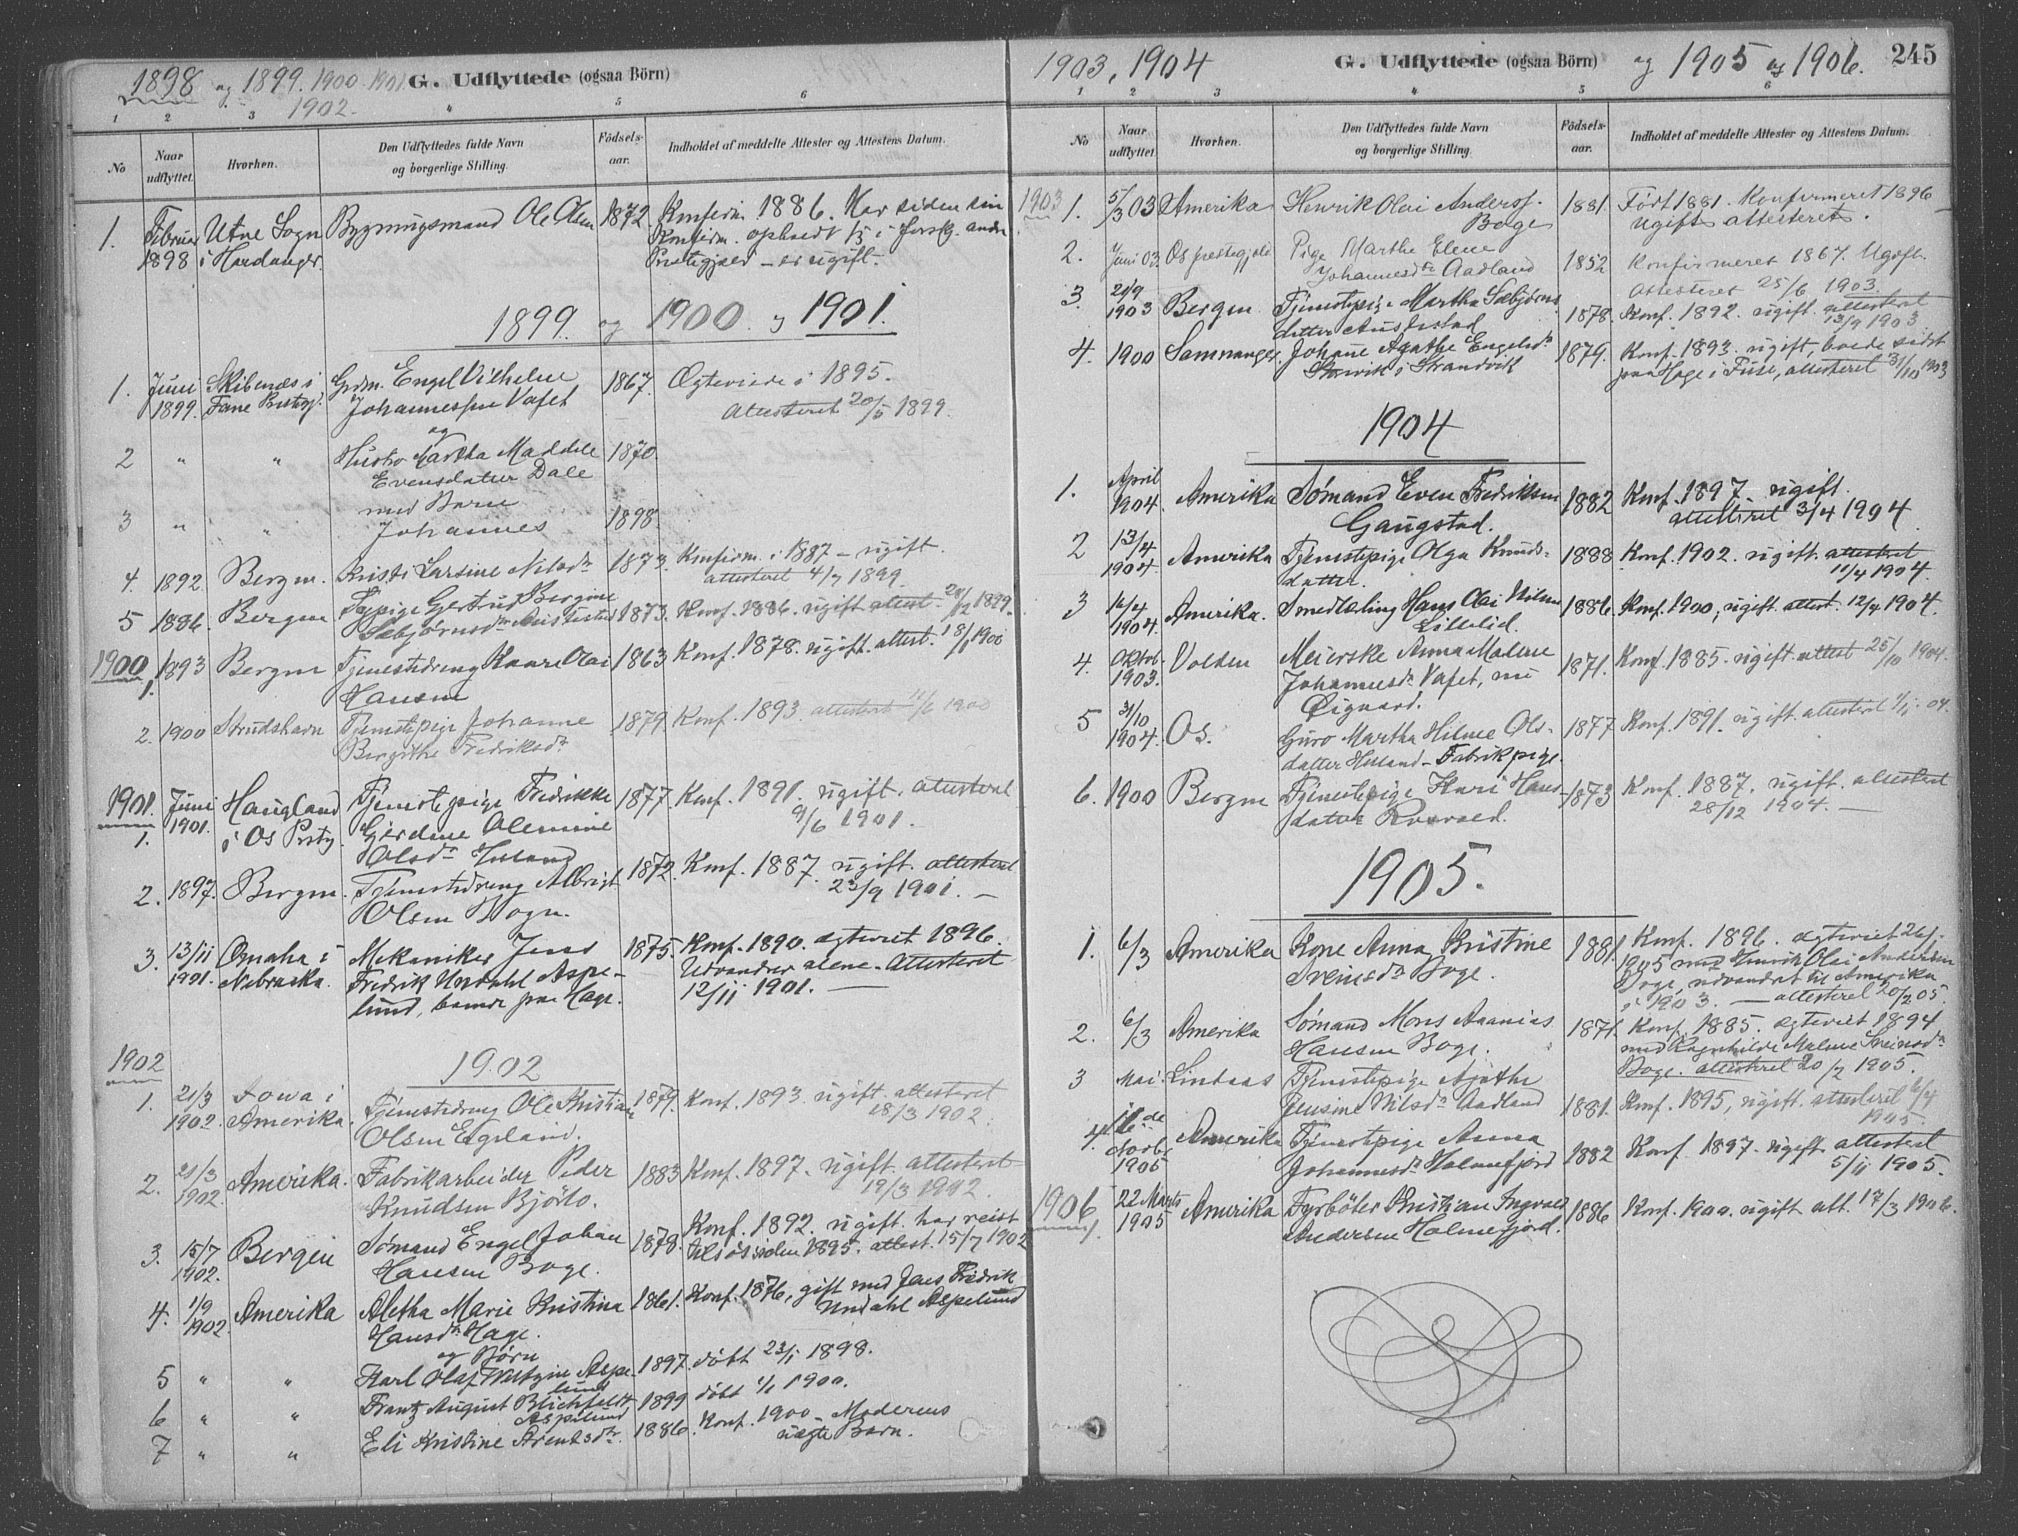 1898 og 1899. 1900. 1901.
1902.
G. Udflyttede (ogsaa Börn)
1 2 3 4 5 6
No
Naar udflyttet.
Hvorhen.
Den Udflyttedes fulde Navn
og borgerlige Stilling.
Födsels-
aar.
Indholdet af meddelte Attester og Attestens Datum.
1. Februar Utne Sogn Bygningsmand Ole Olsen 1872 Konfirm. 1886. Har siden sin
1898 i Hardanger. Konfirm. opholdt i forskj. andre
Prestegjæld – er ugift.
1899. og 1900. og 1901.
1. Juni Skibenæs i Grdm. Engel Vilhelm 1867. Ægteviede i 1895.
1899. Fane Prestegj. Johannessen Vafet attesteret 20/5 1899.
og
2 " " Hustro Martha Maddele 1870.
Evensdatter Dale
med Barn
3 " " Johannes 1898.
4. 1892. Bergen. Kristi Larsine Nilsdtr 1873. Konfirm. i 1887 – ugift.
attesteret 4/7 1899.
5 1886. Bergen Tjpige Gertrud Bergine 1873. Konf. 1886. ugift attest. 28/12 1899.
Sæbjørnsdtr Austestad
1900 1. 1893 Bergen Tjenestedreng Kaare Olai 1863 Konf. 1878. ugift. attest. 18/1 1900
Hansen
2. 1900 Strudshavn Tjenestepige Johanne 1879. Konf. 1893. attesteret 11/6 1900
Bergithe Fredriksdtr
1901. Juni Haugland Tjenestepige Fredrikke 1877 Konf. 1891. ugift. attesteret
1. 1901. i Os Prstgj. Gjerdine Olemine 9/6 1901.
Olsdtr
2. 1897. Bergen. Tjenestedreng Albrigt 1872. Konf. 1887. ugift. attesteret
Olsen Bogn. 23/9 1901. –
3. 13/11 Omaha i Mekaniker Jens 1875. Konf. 1890. ægteviet 1896.
1901. Nebraska. Fredrik Undahl Aspe- Udvandrer alene – Attesteret
lund, boende paa Hage. 12/11 1901. –
1902 1902
1. 21/3 Iowa i Tjenestedreng Ole Kristian 1879. Konf. 1893. ugift. attesteret
1902. Amerika. Olsen Egeland. 18/3 1902.
2. 21/3 Amerika. Fabrikarbeider Peder 1883 Konf. 1897. ugift. attesteret
1902. Knudsen Bjørto. 19/3 1902.
3. 15/7 Bergen Sømand Engel Johan 1878. Konf. 1892. ugift. har reist
1902. Hansen Boge. tilsjøs siden 1895. attest. 15/7 1902
4. 1/9 Amerika Aletha Marie Kristina 1861. Konf. 1876, gift med Jens Fredrik
1902. Hansdtr Hage. Undahl Aspelund
og Børn
5 " " Karl Olaf Aspe- 1897. døbt 23/1 1898.
lund
6 " " Frantz August Blichfeldt 1899 døbt 1/1 1900.
Aspelund
7 " " Eli Kristine Arentsdtr. 1886. Konf. 1900 – Moderens
uægte Barn.
1903, 1904 G. Udflyttede (ogsaa Börn) og 1905 og 1906. 245
1 2 3 4 5 6
No
Naar udflyttet.
Hvorhen.
Den Udflyttedes fulde Navn
og borgerlige Stilling.
Födsels-
aar.
Indholdet af meddelte Attester og Attestens Datum.
1903 1. 5/3 03 Amerika Henrik Olai Anderss. 1881. Født 1881. Konfirmeret 1896 –
Boge ugift attesteret.
2. Juni 03. Os prestegjeld Pige Marthe Elene 1852 Konfirmeret 1867. Ugift.
Johannesdtr Aadland attesteret 25/6 1903.
3. 21/9 Bergen Tjenestepige Martha Sæbjørns 1878. Konf. 1892. ugift. attesteret
1903 datter Austestad 13/9 1903
4. 1900 Samnanger. Johane Agathe Engelsdtr 1879. Konf. 1893. ugift, boede sidst
Storvik i Strandvik paa Hage i Fuse, attesteret 31/10 1903
1904
1. April Amerika Sømand Even Fredriksen 1882 Konf. 1897. ugift.
1904. Gaugstad. attesteret 3/4 1904.
2 13/4 Amerika Tjenestepige Olga Knuds- 1888 Konf. 1902. ugift. attesteret
1904 datter. 11/4 1904.
3 16/4 Amerika. Smedlærling Hans Olai Nilsen 1886. Konf. 1900, ugift. attest. 12/4 1904.
1904. Lillelid.
4. Oktob. Volden Meierske Anna Malene 1871. Konf. 1885. ugift. attest 25/10 1904.
1903. Johannesdtr Vafet, nu
Øigaard.
5 31/10 Os. Guro Martha Hilme Ols- 1877 Konf. 1891. ugift. attesteret 1/11 04.
1904. datter – Fabrikpige.
6. 1900 Bergen Tjenestepige Kari Hans- 1873 Konf. 1887. ugift. attesteret
datter 28/12 1904. –
1905.
1. 6/3 Amerika Kone Anna Kristine 1881. Konf. 1896. ægteviet 26/1
Sveinsdtr Boge. 1905 med Henrik Olai Andersen
Boge, udvandret til Amerika
i 1903. – attesteret 20/2 05.
2. 6/3 Amerika Sømand Mons Ananias 1871. Konf. 1885. ægteviet 1894
Hansen Boge. med Ragnhilde Malene Sveinsdtr
Boge. attesteret 20/2 1905.
3 Mai. Lindaas Tjenestepige Agathe
Jensine Nilsdtr Aadland 1881. Konf. 1895, ugift. attesteret 6/4
1905.
4. 16de Amerika Tjenestepige Anna 1882 Konf. 1897. ugift. attesteret
Novbr Johannesdtr Holmefjord 5/11 1905.
1905
1906 1. 22 Marts Amerika Fyrbøter Kristian Ingvald 1886 Konf. 1900. ugift att. 17/3 1906.
1905 Andersen Holmefjord.